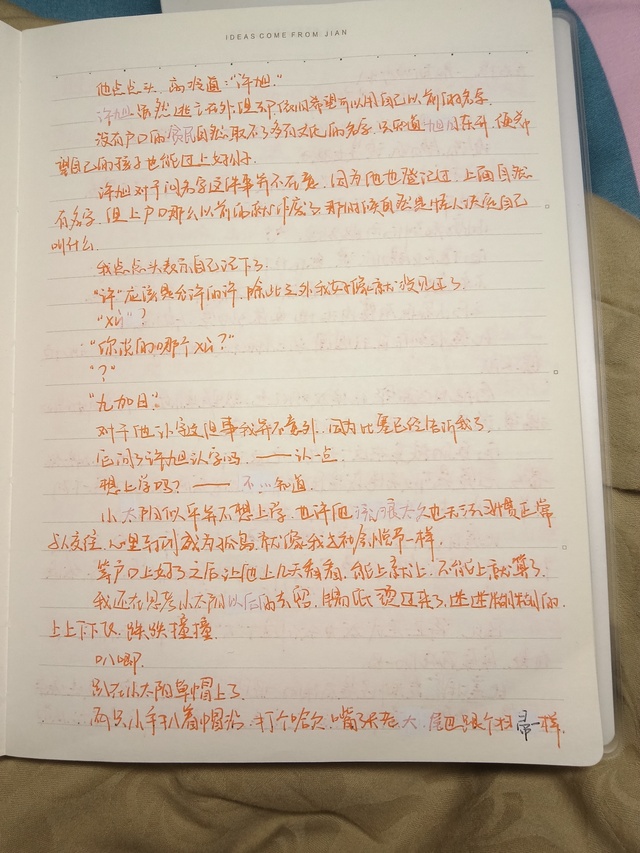 IDEAS COME FROM JIAN
他点点头，篇没道："许旭。"
许旭虽然逃亡在外，但却依旧希望可以用自己以前的名字。
没有户口的贫民自然取不了多有文化的名字，只知道旭日东升，便希
望自己的孩子也能过上好日子。
许旭对于问名字这件事并不在意，因为他也登记过，上面自然
有名字，但上户口那么以前的就作废了，那时候自然是怪人决定自己
叫什么
我点点头表示自己记下了。
"许"应该是允许的许，除此之外我好像就没见过了。
"xù"？
"你说的哪个xù？"
"？"
"九加日。"
对于他认字这但事我并不意外，因为比塞已经告诉我了。
它问了许旭认字吗。——认一点。
想上学吗？——不…知道。
小太阳似乎并不想上学，也许他流浪太久也无法习惯正常
与人交往，心里封闭成为孤岛，就像我去和余惜弗一样。
等户口上好了之后让他上几天看看，能上就上，不能上就算了。
我还在思考小太阳以后的去留，
上上下下，跌跌撞撞。
叭唧。
趴在小太阳草帽上了。
两只小手扒着帽沿，打个哈欠，嘴了张老大，尾巴跟个扫帚一样，